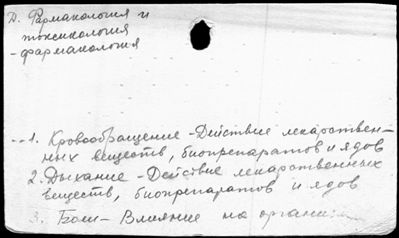 Д. Фармакология и
токсикология
- фармакология
1. Кровообращение - Действие лекарствен-
ных веществ, биопрепаратов и ядов
2. Дыхание - Действие лекарственных
веществ, биопрепаратов и ядов
3. Боли - Влияние на